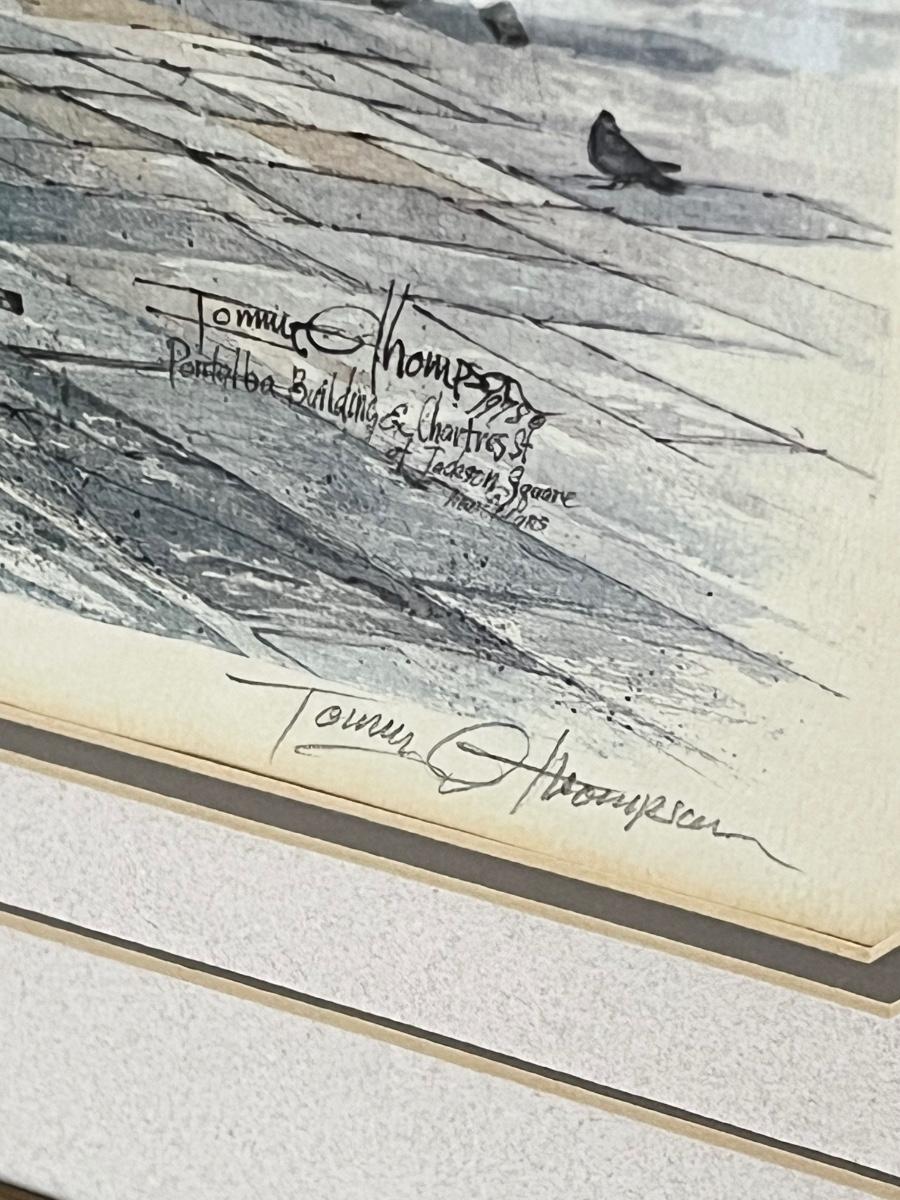 Tommy Thompson
1978 ©
Pontalba Building & Chartres St
at Jackson Square
Tommy Thompson